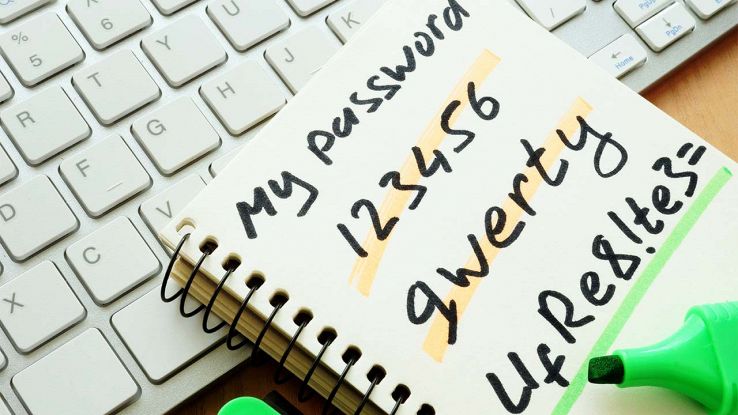 My password
123456
qwerty
UfRe8!te3=
%
5
6
R
T
Y
U
D
F
G
H
J
K
X
C
V
PgUp
PgDn
Home